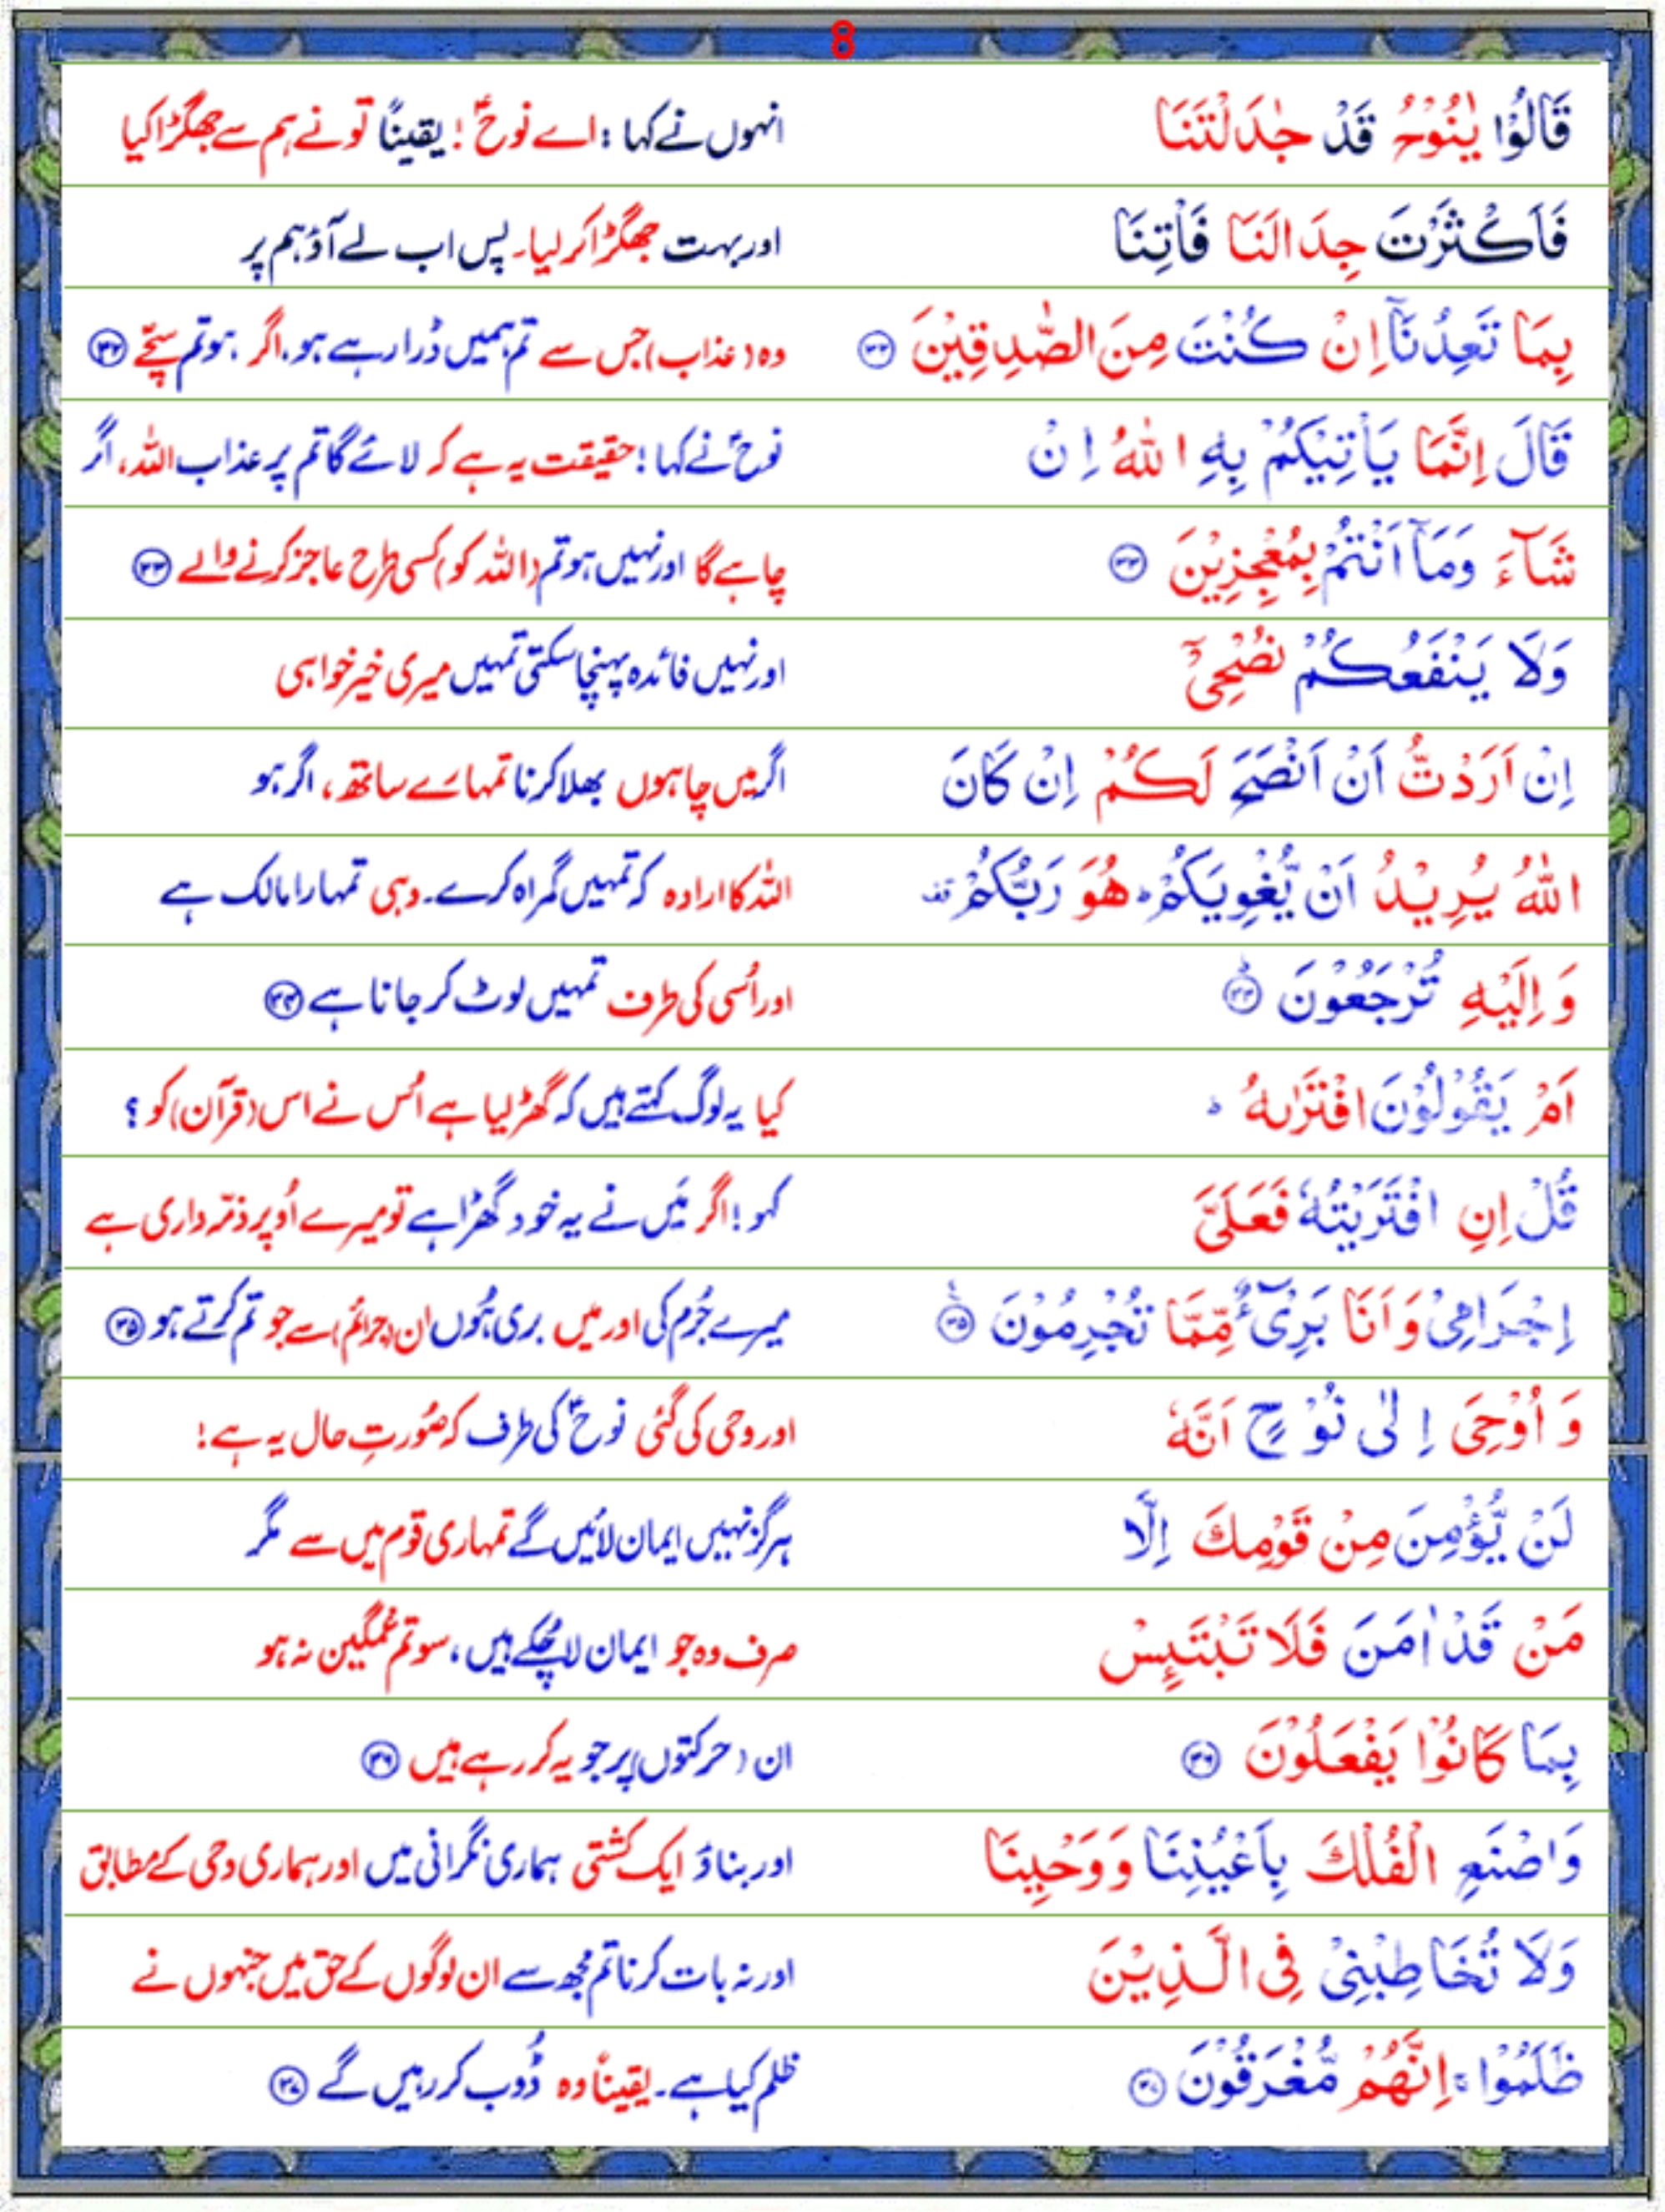 8
قَالُوْا يٰنُوْحُ قَدْ جٰدَلْتَنَا انہوں نے کہا : اے نوحؑ ! یقیناً تو نے ہم سے جھگڑا کیا
فَاَكْثَرْتَ جِدَالَنَا فَاْتِنَا اور بہت جھگڑا کر لیا۔ پس اب لے آؤ ہم پر
بِمَا تَعِدُنَاۤ اِنْ كُنْتَ مِنَ الصّٰدِقِيْنَ ۳۲ وہ (عذاب) جس سے تم ہمیں ڈرا رہے ہو، اگر ہو تم سچّے ۳۲
قَالَ اِنَّمَا يَاْتِيْكُمْ بِهِ اللّٰهُ اِنْ نوحؑ نے کہا ! حقیقت یہ ہے کہ لائے گا تم پر عذاب اللہ، اگر
شَآءَ وَمَاۤ اَنْتُمْ بِمُعْجِزِيْنَ ۳۳ چاہے گا اور نہیں ہو تم (اللہ کو) کسی طرح عاجز کرنے والے ۳۳
وَلَا يَنْفَعُكُمْ نُصْحِيْۤ اور نہیں فائدہ پہنچا سکتی تمہیں میری خیر خواہی
اِنْ اَرَدْتُّ اَنْ اَنْصَحَ لَكُمْ اِنْ كَانَ اگر میں چاہوں بھلا کرنا تمہارے ساتھ، اگر ہو
اللّٰهُ يُرِيْدُ اَنْ يُّغْوِيَكُمْ ؕ هُوَ رَبُّكُمْ ۫ اللہ کا ارادہ کہ تمہیں گمراہ کرے۔ وہی تمہارا مالک ہے
وَ اِلَيْهِ تُرْجَعُوْنَ ۳۴ اور اُسی کی طرف تمہیں لوٹ کر جانا ہے ۳۴
اَمْ يَقُوْلُوْنَ افْتَرٰىهُ ؕ کیا یہ لوگ کہتے ہیں کہ گھڑ لیا ہے اُس نے اس (قرآن) کو ؟
قُلْ اِنِ افْتَرَيْتُهٗ فَعَلَيَّ کہو ! اگر میں نے یہ خود گھڑا ہے تو میرے اُوپر ذمّہ داری ہے
اِجْرَامِيْ وَ اَنَا بَرِيْٓءٌ مِّمَّا تُجْرِمُوْنَ ۳۵ میرے جُرم کی اور میں بری ہُوں ان (جرائم) سے جو تم کرتے ہو ۳۵
وَ اُوْحِيَ اِلٰى نُوْحٍ اَنَّهٗ اور وحی کی گئی نوحؑ کی طرف کہ صُورتِ حال یہ ہے !
لَنْ يُّؤْمِنَ مِنْ قَوْمِكَ اِلَّا ہرگز نہیں ایمان لائیں گے تمہاری قوم میں سے مگر
مَنْ قَدْ اٰمَنَ فَلَا تَبْتَىِٕسْ صرف وہ جو ایمان لا چُکے ہیں، سو تم غمگین نہ ہو
بِمَا كَانُوْا يَفْعَلُوْنَ ۳۶ ان (حرکتوں) پر جو یہ کر رہے ہیں ۳۶
وَاصْنَعِ الْفُلْكَ بِاَعْيُنِنَا وَوَحْيِنَا اور بناؤ ایک کشتی ہماری نگرانی میں اور ہماری وحی کے مطابق
وَلَا تُخَاطِبْنِيْ فِي الَّذِيْنَ اور نہ بات کرنا تم مجھ سے ان لوگوں کے حق میں جنہوں نے
ظَلَمُوْا ۚ اِنَّهُمْ مُّغْرَقُوْنَ ۳۷ ظلم کیا ہے۔ یقیناً وہ ڈُوب کر رہیں گے ۳۷